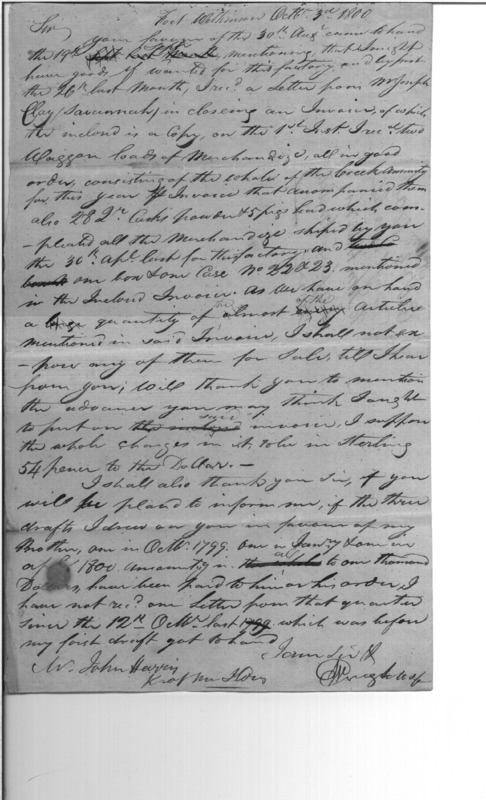 Fort Wilkinson Octr. 3rd 1800
Sir
your favour of the 30th Aug came to hand
the 19th mentioning that I ought
have goods if wanted for this factory, and by post
the 26th last Month, I recd. a Letter from Mr Joseph
Clay, Savannah, in closing an Invoice, of which
the inclosd is a Copy, on the 1st Inst. I recd. two
Waggon loads of Merchandize, all in good
order, consisting of the whole of the Creek Annuity
for this year & Invoice that accompanied them
also 28 Casks powder & 5 pigs lead which com-
-pleated all the Merchandize shiped by you
the 30th Apl. last for this factory, and
one box & one Case No 22 & 23, mentioned
in the Inclosd Invoice. As we have on hand
a quantity of almost of the articles
mentioned in said Invoice, I shall not ex-
-pose any of them for Sale, till I hear
from you; will thank you to mention
the advance you may think I ought
to put on said invoice, I suppose
the whole charges in it, to be in Sterling
54 pence to the Dollar. —
I shall also thank you Sir, if you
will be pleasd to inform me, if the three
drafts I drew on you in favour of my
Brother, one in Octr. 1799 one in Janry & one in
1800 amounting in all to one thousand
Dollars, have been paid to him or his order, I
have not recd. one Letter from that quarter
since the 12th Octr. last which was before
my first draft got to hand
I am Sir &
Mr. John Harris